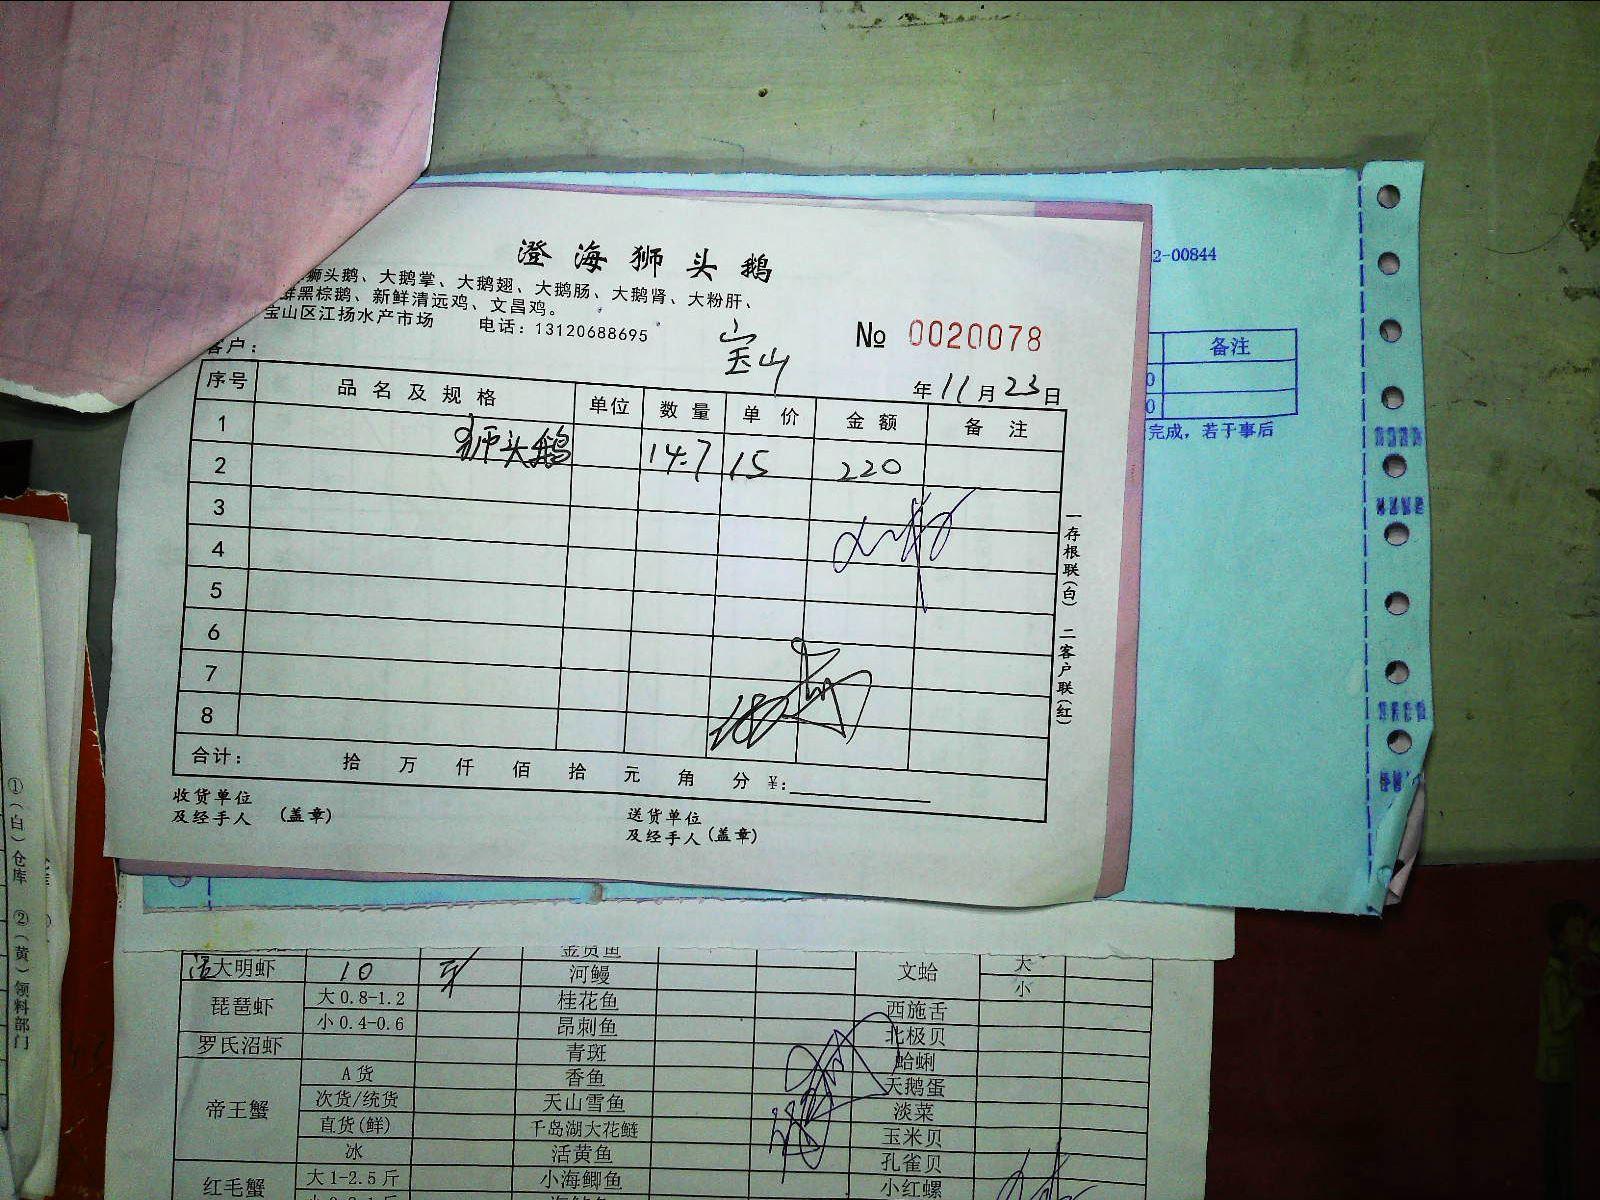 澄海狮头鹅
狮头鹅、大鹅掌、大鹅翅、大鹅肠、大鹅肾、大粉肝、
鲜黑棕鹅、新鲜清远鸡、文昌鸡。
宝山区江扬水产市场 电话：13120688695
№ 0020078
客户： 宝山
年 11 月 23 日
序号 品名及规格 单位 数量 单价 金额 备注
1 狮头鹅 14.7 15 220
2
3
4
5
6
7
8
合计： 拾 万 仟 佰 拾 元 角 分 ¥：
收货单位
及经手人 （盖章）
送货单位
及经手人（盖章）
一存根联（白） 二客户联（红）
2-00844
备注
0
0
完成，若于事后
①（白）仓库 ②（黄）领料部门
大明虾 10 河鳗 文蛤 大
小
琵琶虾 大0.8-1.2 桂花鱼 西施舌
小0.4-0.6 昂刺鱼 北极贝
罗氏沼虾 青斑 蛤蜊
帝王蟹 A货 香鱼 天鹅蛋
次货/统货 天山雪鱼 淡菜
直货(鲜) 千岛湖大花鲢 玉米贝
冰 活黄鱼 孔雀贝
红毛蟹 大1-2.5斤 小海鲫鱼 小红螺